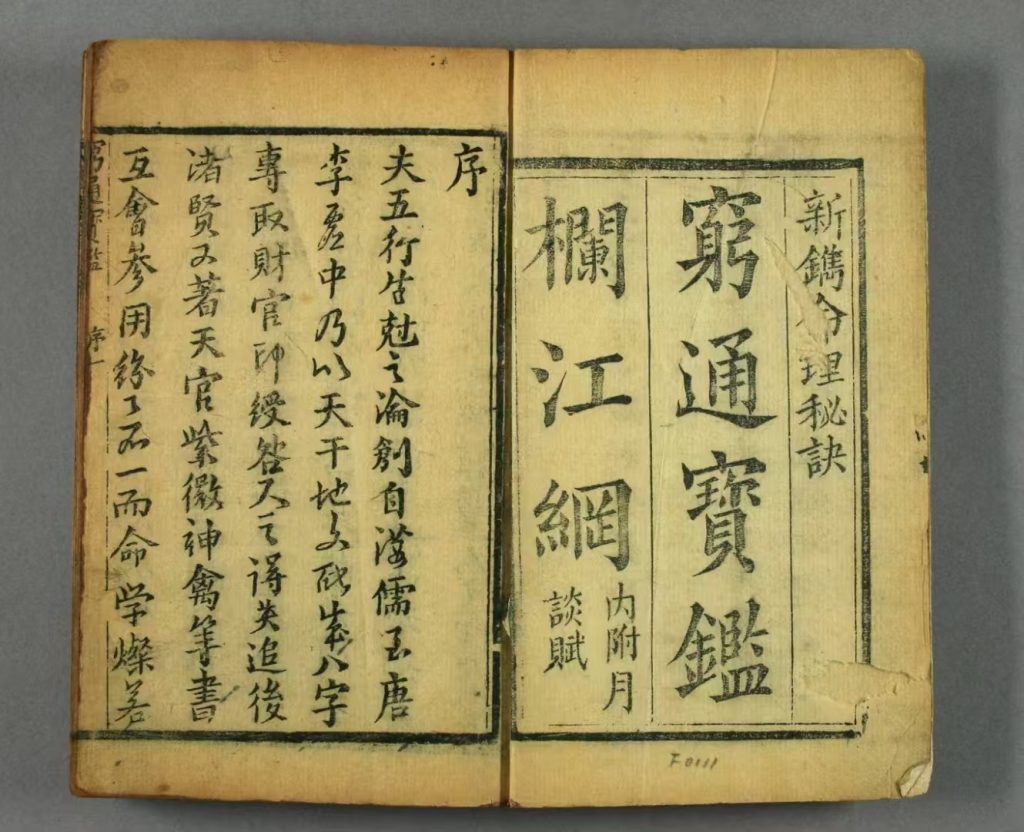 新鐫命理秘訣
窮通寶鑑
欄江網
內附月
談賦
序
夫五行生尅之論創自漢儒至唐
李虛中乃以天干地支配成八字
專取財官印綬啓人之得失追後
渚賢又著天官紫微神禽等書
互會參用紛〻不一而命学燦若
窮通寳鑑
序一
F0111